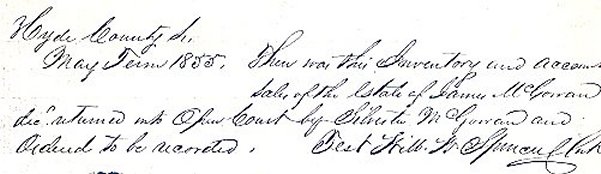 Hyde County Sc.
May Term 1855. Then was this Inventory and account
sales of the Estate of James McGowan
decd. returned into Open Court by Silvester McGowan and
Ordered to be recorded. Test Will. W. Spencer Clerk